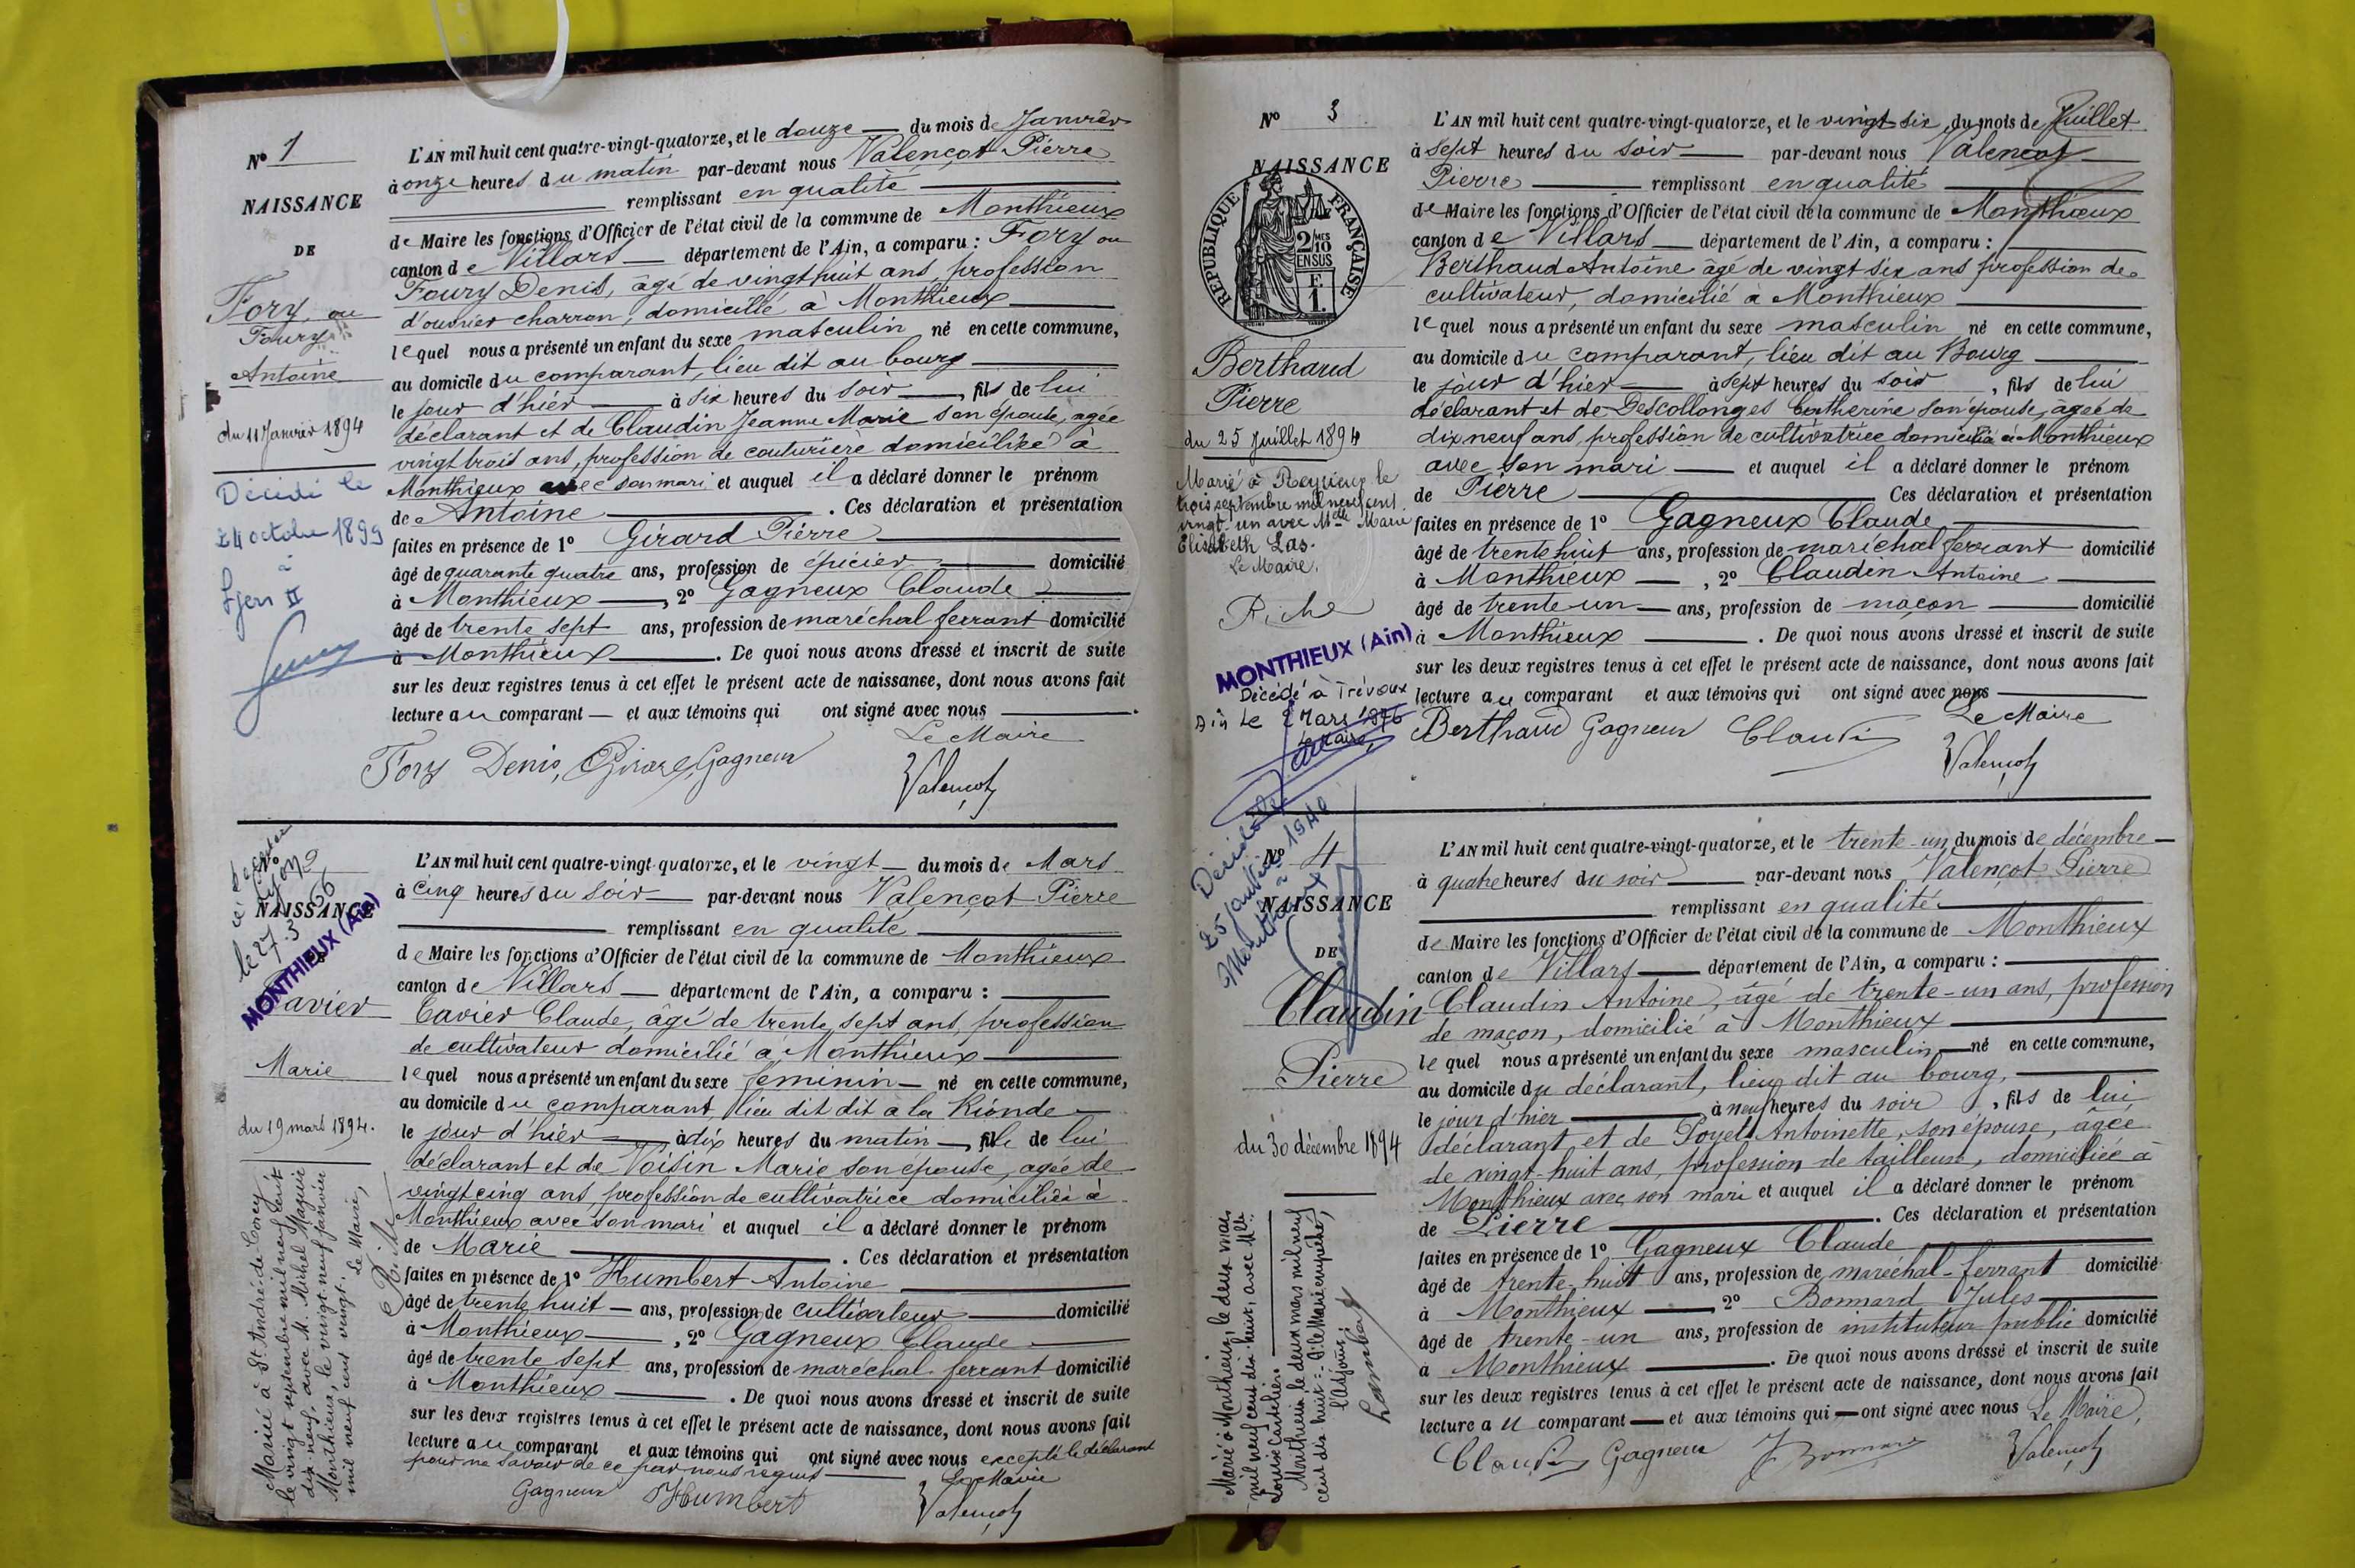 Nº 1
NAISSANCE
DE
Fory ou
Foury
Antoine
du 11 Janvier 1894
Décédé le
24 octobre 1899
à
Lyon II
L'AN mil huit cent quatre-vingt-quatorze, et le douze du mois de Janvier
à onze heures du matin par-devant nous Valençot Pierre
remplissant en qualité
de Maire les fonctions d'Officier de l'état civil de la commune de Monthieux
canton de Villars département de l'Ain, a comparu : Fory ou
Foury Denis, âgé de vingt huit ans, profession
d'ouvrier charron, domicilié à Monthieux
lequel nous a présenté un enfant du sexe masculin né en cette commune,
au domicile du comparant, lieu dit au bourg
le jour d'hier à six heures du soir, fils de lui
déclarant et de Claudin Jeanne Marie son épouse, agée
vingt trois ans, profession de couturière domiciliée à
Monthieux avec son mari et auquel il a déclaré donner le prénom
de Antoine. Ces déclaration et présentation
faites en présence de 1º Girard Pierre
âgé de quarante quatre ans, profession de épicier domicilié
à Monthieux, 2º Gagneux Claude
âgé de trente sept ans, profession de maréchal ferrant domicilié
à Monthieux. De quoi nous avons dressé et inscrit de suite
sur les deux registres tenus à cet effet le présent acte de naissance, dont nous avons fait
lecture au comparant et aux témoins qui ont signé avec nous
Le Maire
Fory Denis, Girard, Gagneux
Valençot
le 27.3.66
NAISSANCE
MONTHIEUX (Ain)
Tavier
Marie
du 19 mars 1894.
Marié à St André de Corcy,
le vingt septembre mil neuf cent
dix-neuf, avec M. Michel Maguis
Monthieux, le vingt-neuf janvier
mil neuf cent vingt.
Le Maire,
Riche
L'AN mil huit cent quatre-vingt-quatorze, et le vingt du mois de Mars
à cinq heures du soir par-devant nous Valençot Pierre
remplissant en qualité
de Maire les fonctions d'Officier de l'état civil de la commune de Monthieux
canton de Villars département de l'Ain, a comparu :
Tavier Claude, âgé de trente sept ans, profession
de cultivateur domicilié à Monthieux
lequel nous a présenté un enfant du sexe feminin né en cette commune,
au domicile du comparant, lieu dit dit a la Rionde
le jour d'hier à dix heures du matin, fille de lui
déclarant et de Voisin Marie son épouse, agée de
vingt cinq ans, profession de cultivatrice domiciliée à
Monthieux avec son mari et auquel il a déclaré donner le prénom
de Marie. Ces déclaration et présentation
faites en présence de 1º Humbert Antoine
âgé de trente huit ans, profession de cultivateur domicilié
à Monthieux, 2º Gagneux Claude
âgé de trente sept ans, profession de maréchal ferrant domicilié
à Monthieux. De quoi nous avons dressé et inscrit de suite
sur les deux registres tenus à cet effet le présent acte de naissance, dont nous avons fait
lecture au comparant et aux témoins qui ont signé avec nous excepté le déclarant
pour ne savoir de ce par nous requis
Le Maire
Gagneux Humbert
Valençot
Nº 3
NAISSANCE
REPUBLIQUE FRANÇAISE
2/10 MES EN SUS
F. 1.
Berthaud
Pierre
du 25 Juillet 1894
Marié à Reyrieux le
trois septembre mil neuf cent
vingt-un avec Melle Marie
Elisabeth Las.
Le Maire,
Riche
MONTHIEUX (Ain)
Décédé à Trévoux
Ain Le 2 Mars 1976
Le Maire,
L'AN mil huit cent quatre-vingt-quatorze, et le vingt six du mois de Juillet
à sept heures du soir par-devant nous Valençot
Pierre remplissant en qualité
de Maire les fonctions d'Officier de l'état civil de la commune de Monthieux
canton de Villars département de l'Ain, a comparu :
Berthaud Antoine âgé de vingt six ans profession de
cultivateur, domicilié à Monthieux
lequel nous a présenté un enfant du sexe masculin né en cette commune,
au domicile du comparant, lieu dit au Bourg
le jour d'hier à sept heures du soir, fils de lui
déclarant et de Descollonges Catherine son épouse, âgée de
dix neuf ans, profession de cultivatrice domiciliée à Monthieux
avec son mari et auquel il a déclaré donner le prénom
de Pierre Ces déclaration et présentation
faites en présence de 1º Gagneux Claude
âgé de trente huit ans, profession de maréchal ferrant domicilié
à Monthieux, 2º Claudin Antoine
âgé de trente un ans, profession de maçon domicilié
à Monthieux. De quoi nous avons dressé et inscrit de suite
sur les deux registres tenus à cet effet le présent acte de naissance, dont nous avons fait
lecture au comparant et aux témoins qui ont signé avec nous
Le Maire
Berthaud Gagneux Claudin
Valençot
Décédé
25 janvier 1940
à
Monthieux
Nº 4
NAISSANCE
DE
Claudin
Pierre
du 30 décembre 1894
Marié à Monthieux, le deux mars
mil neuf cent dix-huit, avec Melle
Louise Cartelier.
Monthieux le deux mars mil neuf
cent dix huit = P. le Maire empêché,
l'Adjoint,
L'AN mil huit cent quatre-vingt-quatorze, et le trente-un du mois de décembre
à quatre heures du soir par-devant nous Valençot Pierre
remplissant en qualité
de Maire les fonctions d'Officier de l'état civil de la commune de Monthieux
canton de Villars département de l'Ain, a comparu :
Claudin Antoine, âgé de trente-un ans, profession
de maçon, domicilié à Monthieux
lequel nous a présenté un enfant du sexe masculin né en cette commune,
au domicile du déclarant, lieu dit au bourg,
le jour d'hier à neuf heures du soir, fils de lui
déclarant et de Poyet Antoinette, son épouse, âgée
de vingt-huit ans, profession de tailleuse, domiciliée à
Monthieux avec son mari et auquel il a déclaré donner le prénom
de Pierre. Ces déclaration et présentation
faites en présence de 1º Gagneux Claude
âgé de trente-huit ans, profession de maréchal-ferrant domicilié
à Monthieux, 2º Bonnard Jules
âgé de trente-un ans, profession de instituteur public domicilié
à Monthieux. De quoi nous avons dressé et inscrit de suite
sur les deux registres tenus à cet effet le présent acte de naissance, dont nous avons fait
lecture au comparant et aux témoins qui ont signé avec nous Le Maire,
Claudin Gagneux J Bonnard
Valençot